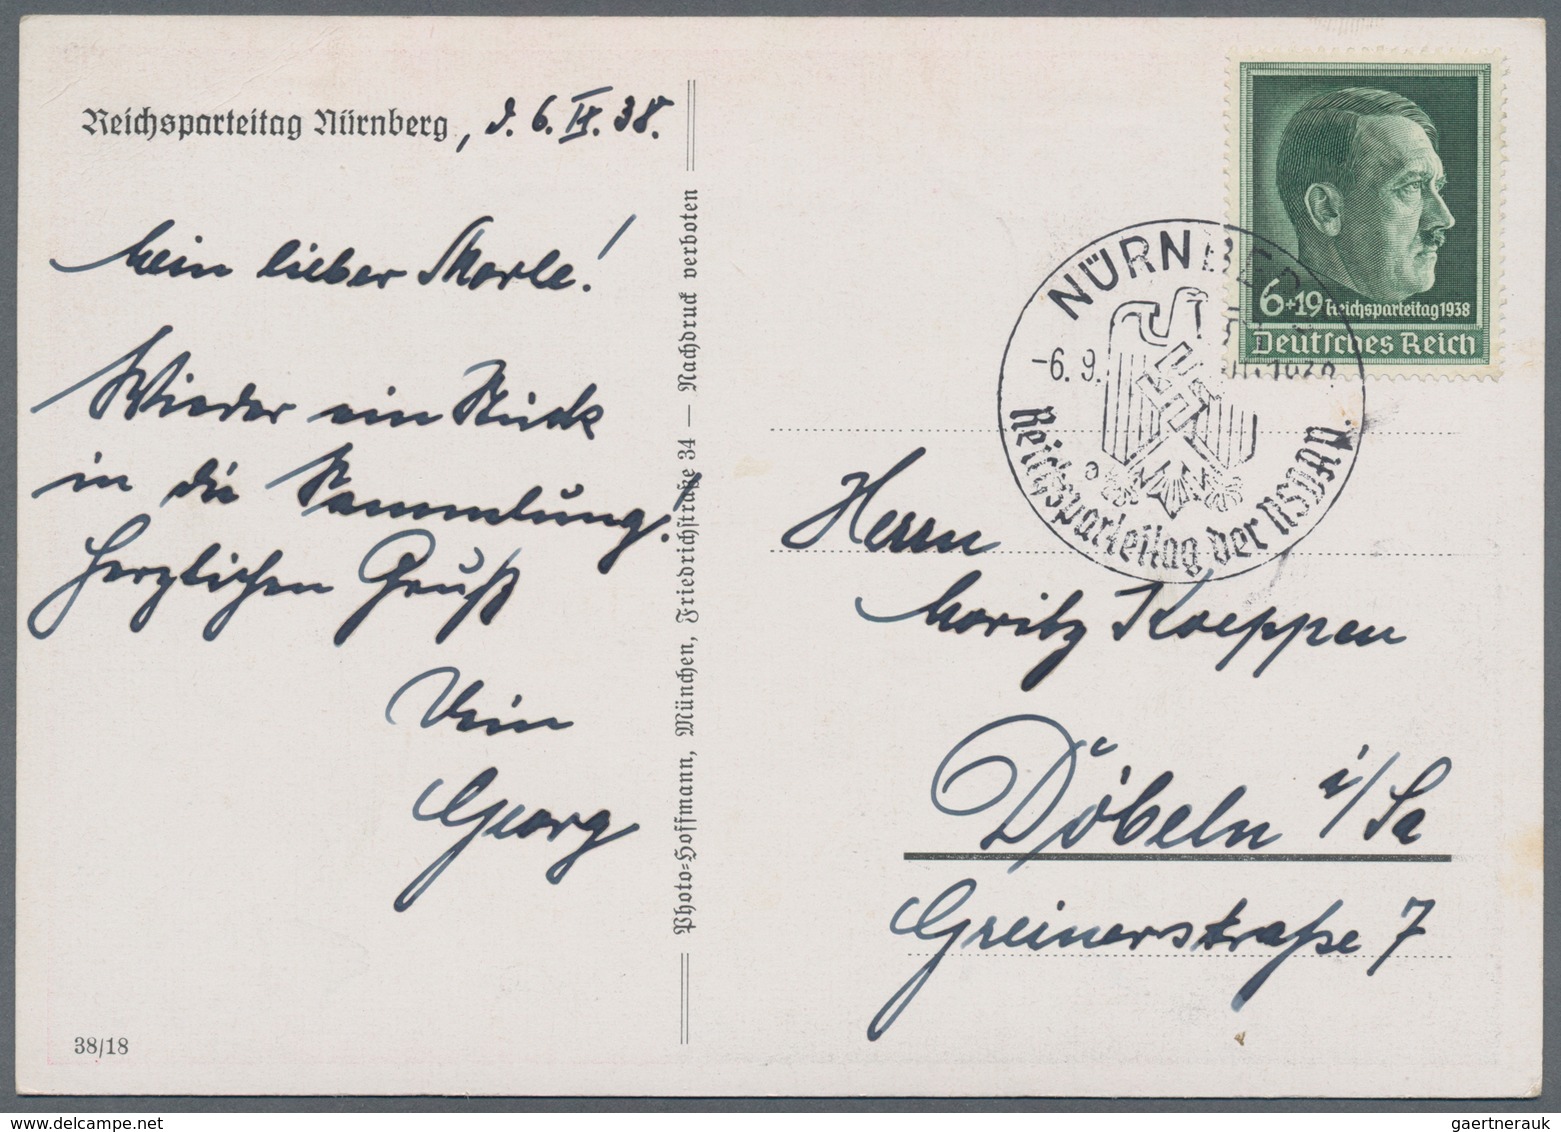 Reichsparteitag Nürnberg, d. 6. IX. 38.
Mein lieber Morle!
Wieder ein Stück
in die Sammlung!
Herzlichen Gruß
Dein
Georg
38/18
Photo-Hoffmann, München, Friedrichstraße 34 — Nachdruck verboten
6+19 Reichsparteitag 1938
Deutsches Reich
NÜRNBERG
-6.9.
Reichsparteitag der NSDAP.
Herrn
Moritz Koeppen
Döbeln i/Sa
Greinerstraße 7
gaertnerauk